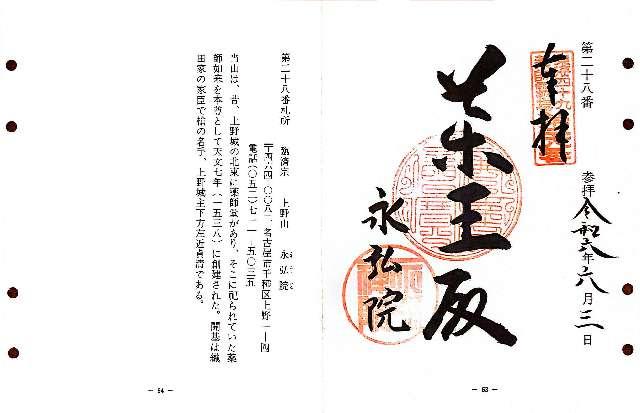 第二十八番
奉拝
参拝令和六年六月三日
薬王殿
永弘院
— 63 —
第二十八番札所 臨済宗 上野山 永弘院
〒四六四-〇〇八二 名古屋市千種区上野一-四
電話(〇五二)七二一-五〇三五
当山は、昔、上野城の北東に薬師堂があり、そこに祀られていた薬
師如来を本尊として天文七年(一五三八)に創建された。開基は織
田家の家臣で槍の名手、上野城主下方左近貞清である。
— 64 —